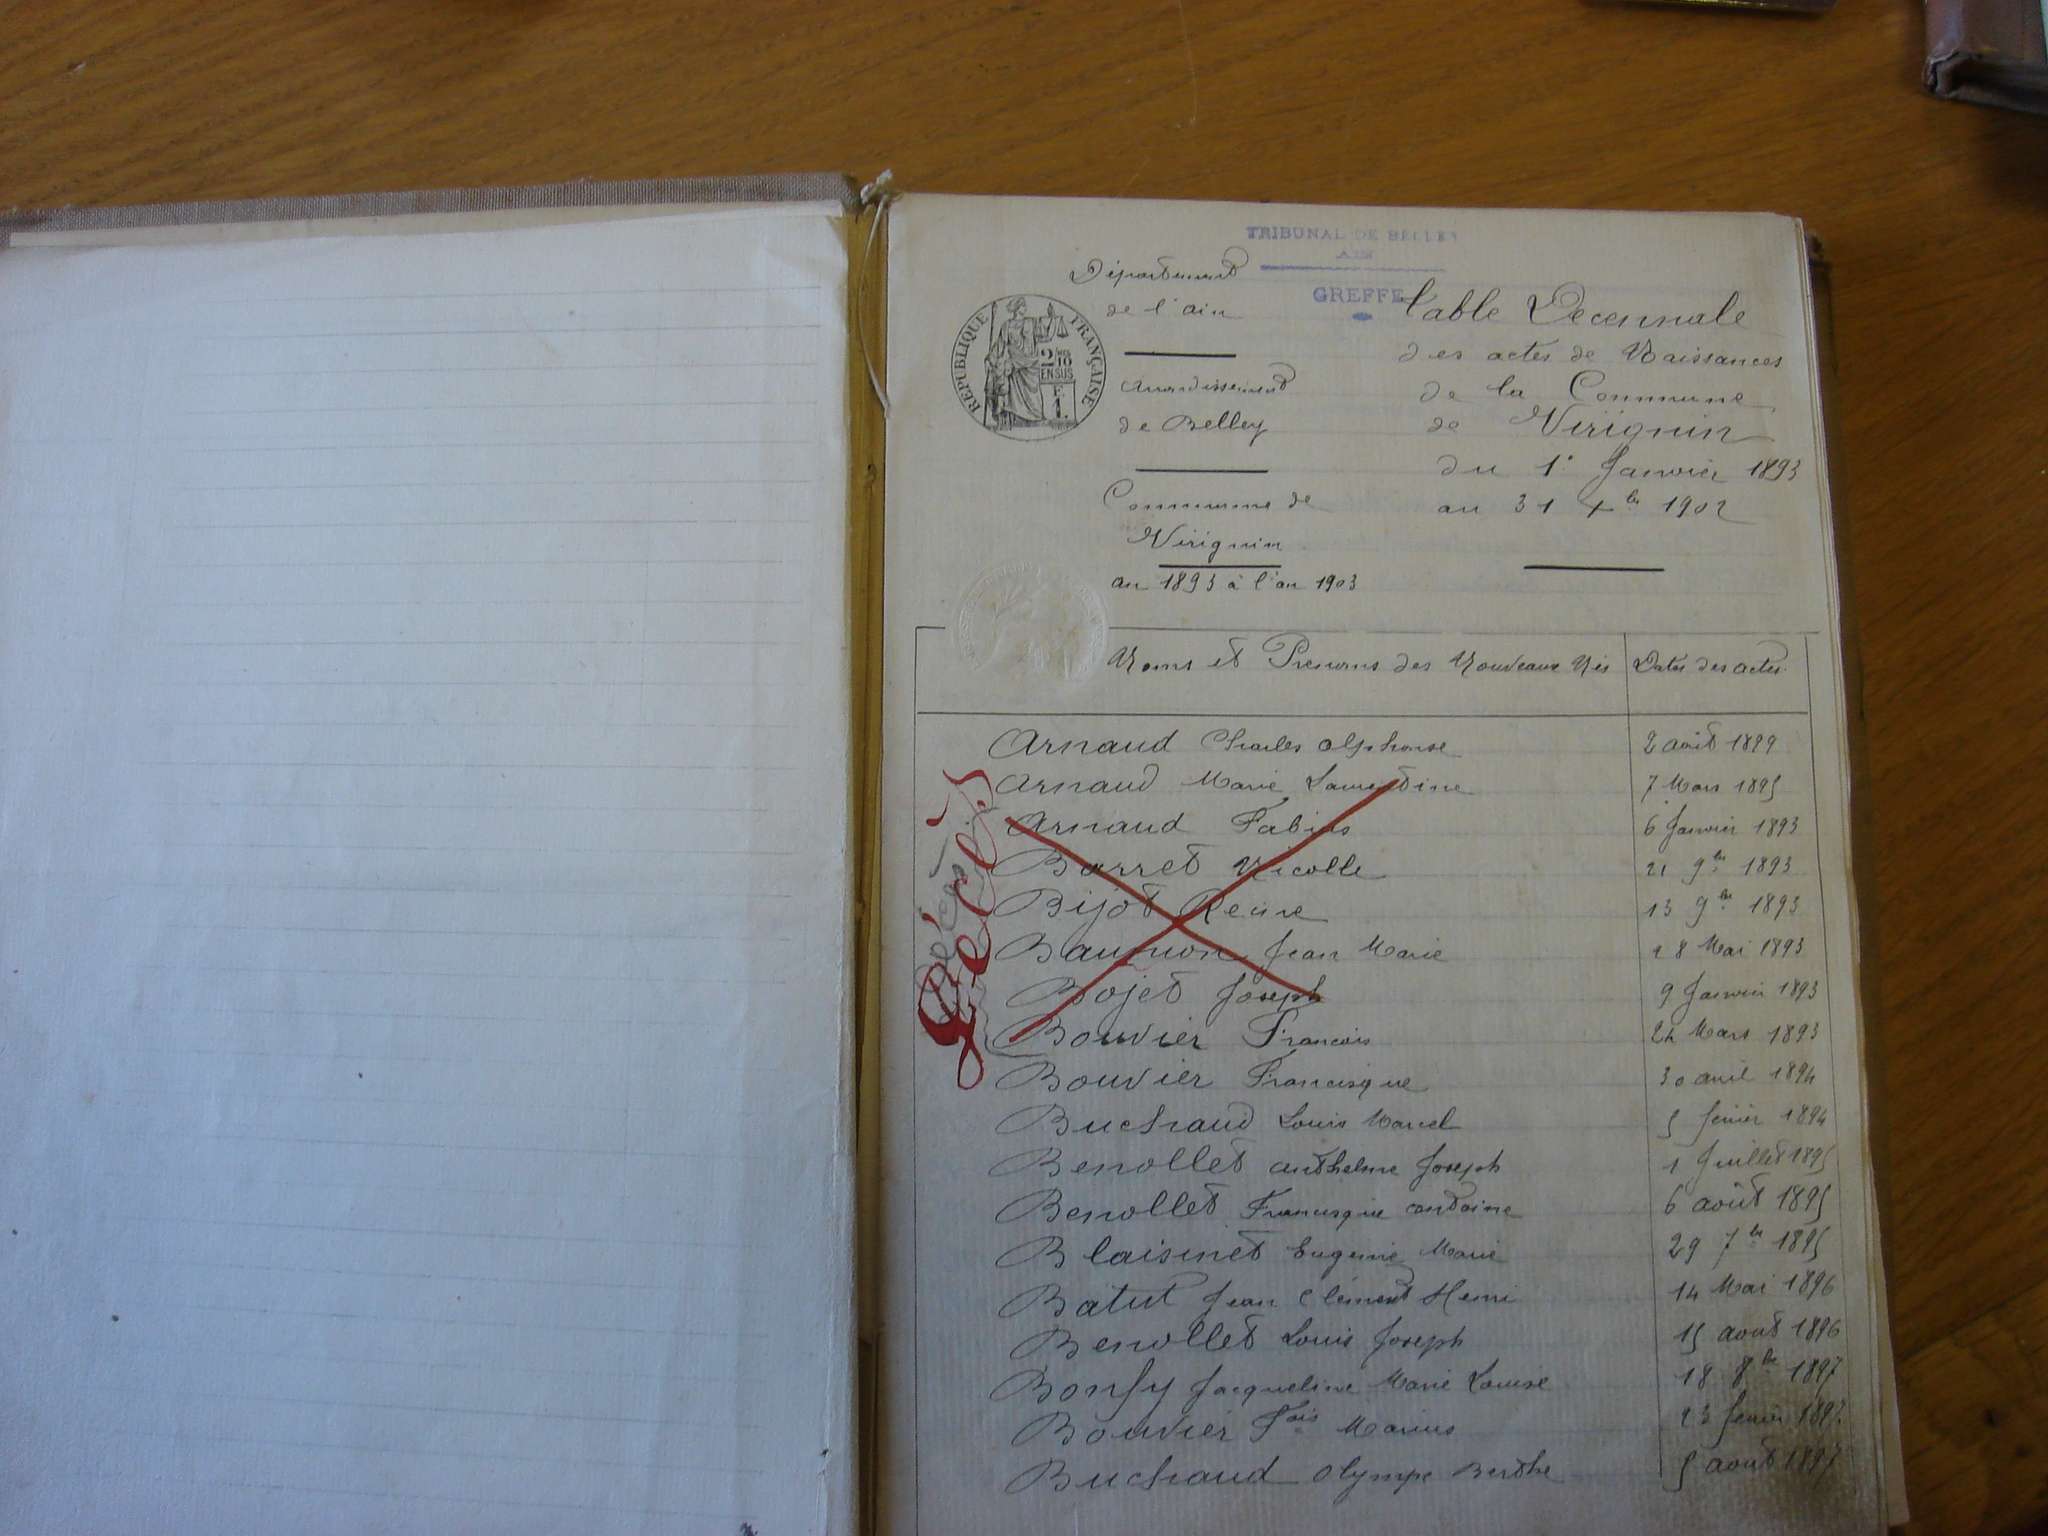 TRIBUNAL DE BELLEY
AIN
GREFFE
Département
de l'ain
REPUBLIQUE FRANÇAISE
2/10
EN SUS
1F
arrondissement
de Belley
Commune de
Virignin
an 1893 à l'an 1903
Table Decennale
des actes de Naissances
de la Commune
de Virignin
du 1er Janvier 1893
au 31 Xbre 1902
Noms et Prenoms des Nouveaux Nés Dates des actes
Décès
Arnaud Charles alphonse 2 août 1899
Arnaud Marie Laurentine 7 Mars 1895
Arnaud Fabius 6 Janvier 1893
Barret Nicolle 21 9bre 1893
Bijot Reine 13 9bre 1893
Jean Marie 28 Mai 1893
Bojet Joseph 9 Janvier 1893
Bouvier Francois 24 Mars 1893
Bouvier Francisque 30 avril 1894
Buchaud Louis Marcel 5 fevrier 1894
Benollet anthelme Joseph 1 Juillet 1895
Benollet Francisque antoine 6 août 1895
Blaisinet Eugenie Marie 29 7bre 1895
Batut Jean Clément Henri 14 Mai 1896
Benollet Louis Joseph 15 août 1896
Bonfy Jacqueline Marie Louise 18 8bre 1897
Bouvier Fois Marius 23 fevrier 1897
Buchaud Olympe Berthe 5 août 1897